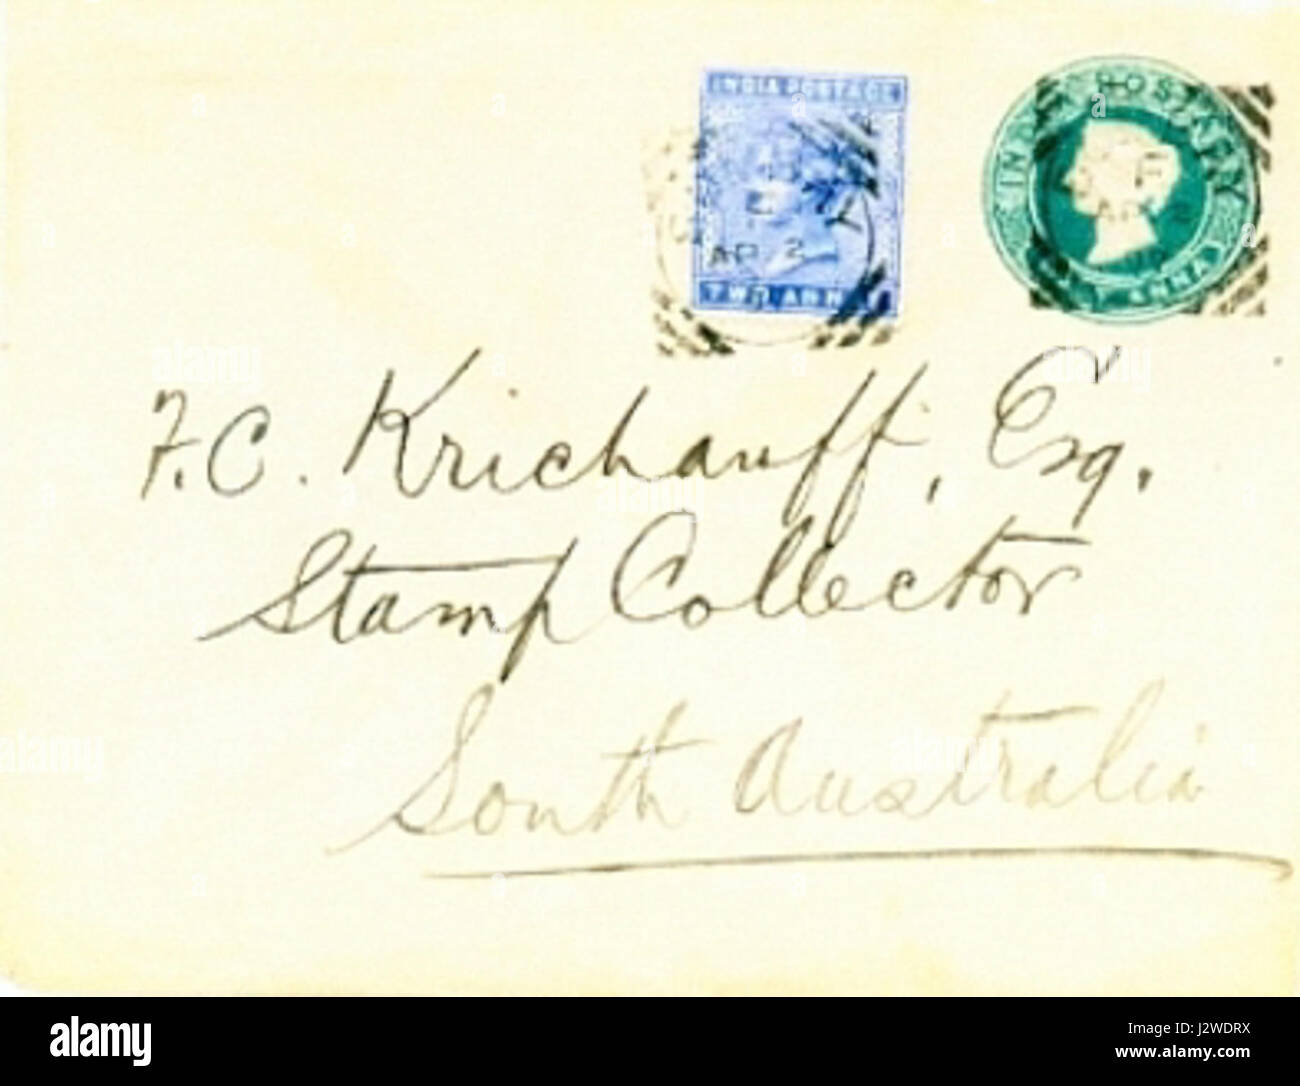 INDIA POSTAGE
AP 2
TWO ANNA
INDIA POSTAGE
AP
ANNA
F.C. Krichauff, Esq.
Stamp Collector
South Australia
alamy
Image ID: J2WDRX
www.alamy.com